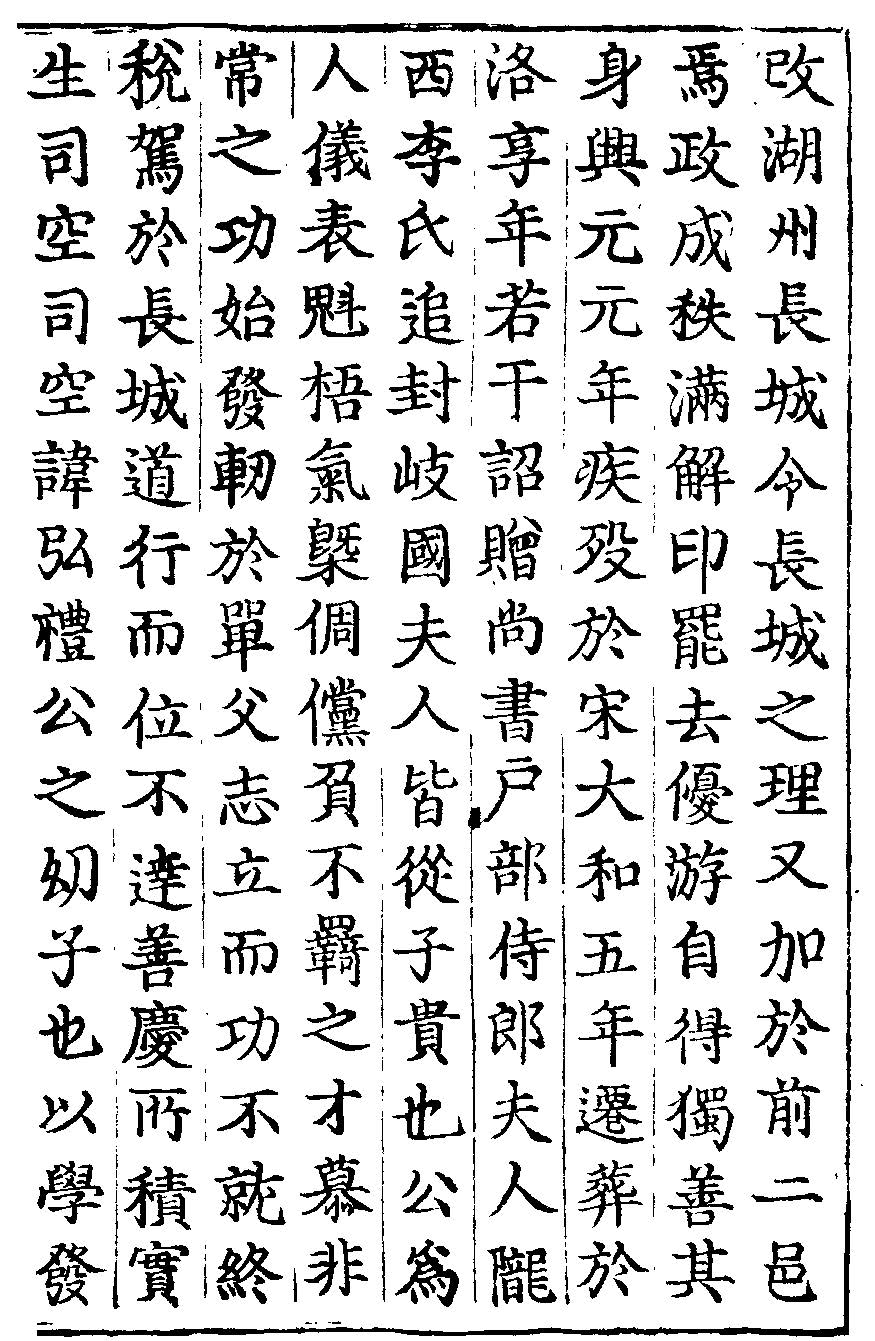 改湖州長城令長城之理又加於前二邑
焉政成秩滿解印罷去優游自得獨善其
身興元元年疾歿於宋大和五年遷葬於
洛享年若干詔贈尚書户部侍郎夫人隴
西李氏追封岐國夫人皆從子貴也公爲
人儀表魁梧氣槩倜儻負不羇之才慕非
常之功始發軔於單父志立而功不就終
稅駕於長城道行而位不達善慶所積實
生司空司空諱弘禮公之幼子也以學發